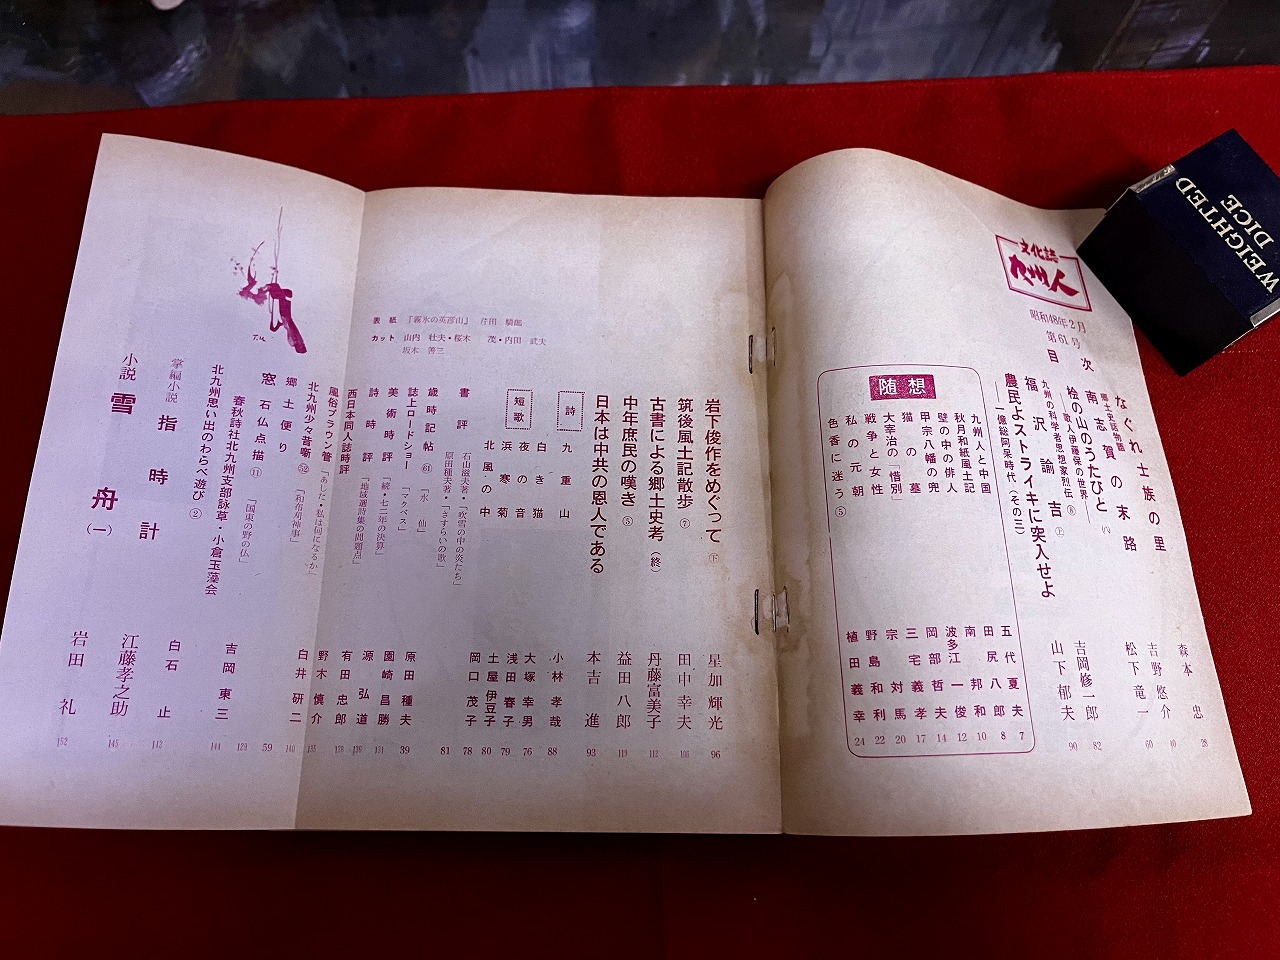 文化誌
九州人
昭和48年2月
第61号
目次
なぐれ士族の里 森本忠 28
郷土史話物語
南志賀の末路 吉野悠介 40
桧の山のうたびと 松下竜一 60
歌人伊藤保の世界
九州の科学者思想家列伝 ⑧
福沢諭吉 ㊤ 吉岡修一郎 82
農民よストライキに突入せよ 山下郁夫 90
一億総阿呆時代(その三)
随想
九州人と中国 五代夏夫 7
秋月和紙風土記 田尻八郎 8
壁の中の俳人 南邦和 10
甲宗八幡の兜 波多江一俊 12
猫の墓 岡部哲夫 14
大宰治の「惜別」 三宅義孝 17
戦争と女性 宗対馬 20
私の元朝 野島和利 22
色香に迷う⑤ 植田義幸 24
岩下俊作をめぐって ㊦ 星加輝光 96
筑後風土記散歩 ⑦ 田中幸夫 106
古書による郷土史考 (終) 丹藤富美子 112
中年庶民の嘆き ⑤ 益田八郎 119
日本は中共の恩人である 本吉進 93
詩
九重山 小林孝哉 88
短歌
白き猫 大塚幸男 76
夜の音 浅田春子 79
浜寒菊 土屋伊豆子 80
北風の中 岡口茂子 78
書評 石山滋夫著・「吹雪の中の炎たち」 81
原田種夫著・「さすらいの歌」
歳時記帖 ㉖ 「水仙」 原田種夫 39
誌上ロードショー 「マクベス」 園崎昌勝 131
美術時評 「続・七二年の決算」 源弘道 136
詩時評 「地域選詩集の問題点」 有田忠郎 128
西日本同人誌時評 野木慎介 135
風俗ブラウン管 「あした・私は何になるか」 白井研二 140
北九州少々昔噺 52 「和布刈神事」
郷土便り 59
窓 石仏点描 ⑪ 「国東の野の仏」 129
春秋詩社北九州支部詠草・小倉玉藻会
北九州思い出のわらべ遊び ② 吉岡東三 144
掌編小説 指時計 白石止 142
小説 雪舟 (一) 江藤孝之助 145
岩田礼 152
表紙 「霧氷の英彦山」 芹田騎郎
カット 山内壮夫・桜木茂・内田武夫
坂本善三
T.U.
WEIGHTED
DICE